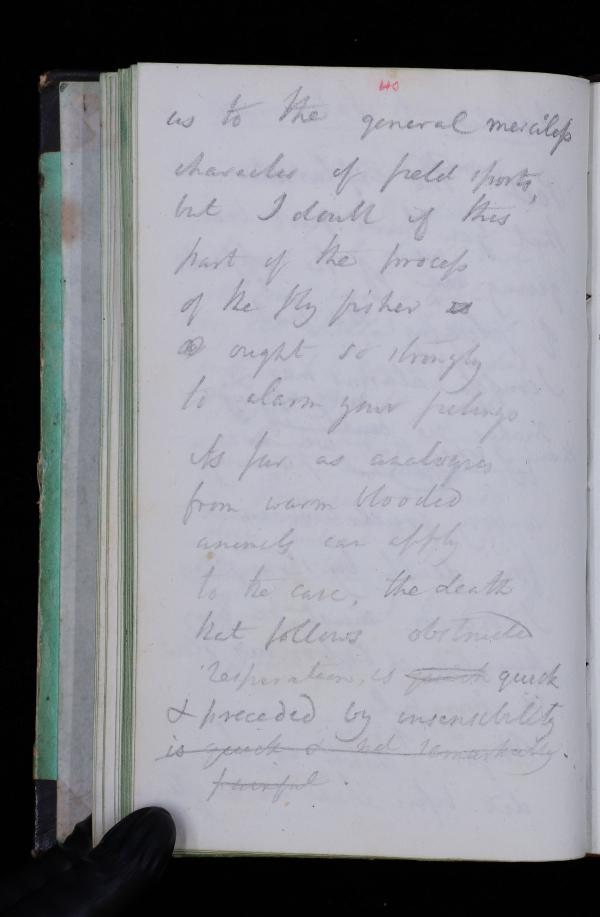 40
as to the general merciless
character of field sports,
but I doubt if this
part of the process
of the fly fisher
ought so strongly
to alarm your feelings.
As far as analogies
from warm blooded
animals can apply
to the case, the death
that follows obstructed
respiration, is quick quick
& preceded by insensibility
is quick & not remarkably
painful.